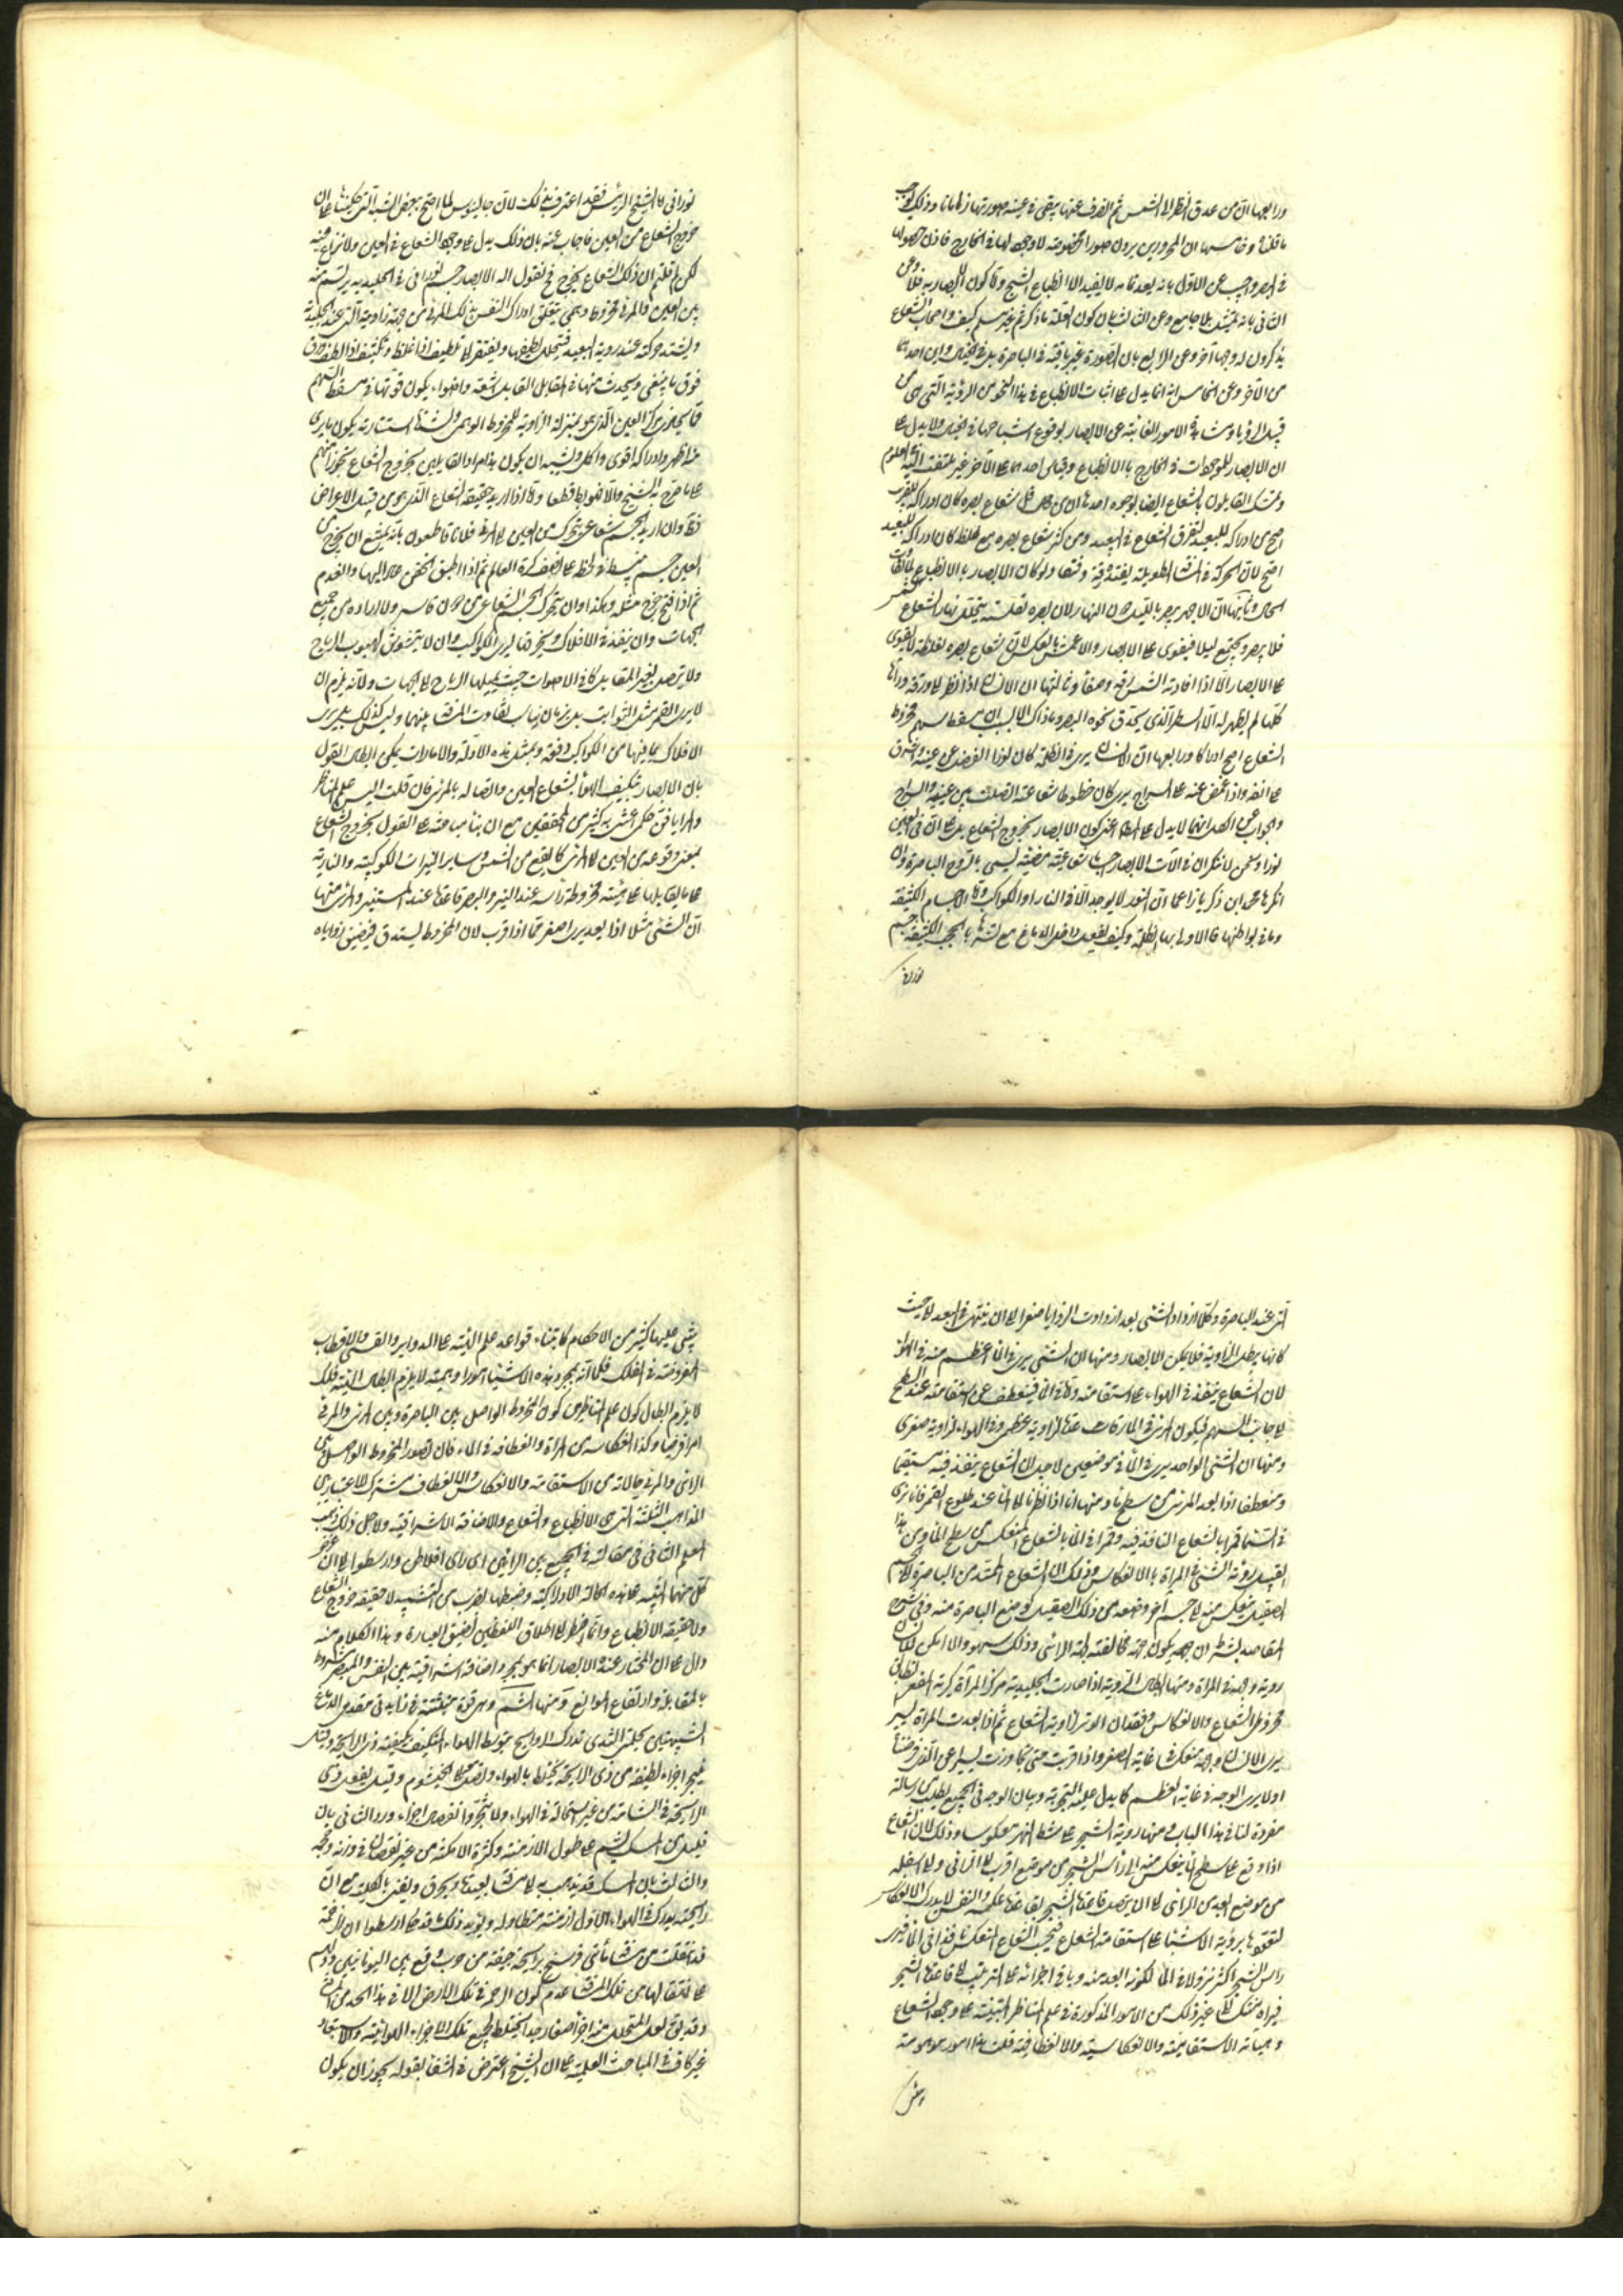 ورابعها ان من حدق النظر الى الشمس ثم انصرف عنها يبقى في عينه صورتها زمانا وذلك يوجب
ما قلناه وخامسها ان الممرورين يرون صورا مخصوصة لا وجود لها في الخارج فاذن حصولها
في البصر واجيب عن الاول بانه بعد تمامه لا يفيد الا انطباع الشبح واما كون الابصار به فلا وعن
الثاني بانه تمثيل بلا جامع وعن الثالث بان كون العلة ما ذكرتم غير مسلم كيف واصحاب الشعاع
يذكرون له وجها آخر وعن الرابع بان الصورة غير باقية في الباصرة بل في الخيال واين احدهما
من الآخر وعن الخامس انه انما يدل على اثبات الانطباع في هذا النحو من الرؤية التي هي من
قبيل الرؤيا ومشاهدة الامور الغائبة عن الابصار بوقوع اشباحها في الخيال ولا يدل على
ان الابصار للموجودات في الخارج بالانطباع وقياس احدهما على الآخر غير ملتفت اليه في العلوم
وتمسك القايلون بالشعاع ايضا بوجوه احدها ان من قل شعاع بصره كان ادراكه للقريب
اصح من ادراكه للبعيد لتفرق الشعاع في البعيد ومن كثر شعاع بصره مع غلظ كان ادراكه للبعيد
اصح لان الحركة في المسافة الطويلة يفيده رقة وصفا ولو كان الابصار بالانطباع لما تفاوت
الحال وثانيها ان الاجهر يبصر بالليل دون النهار لان بصره لقلته يتحلل نهارا لشعاع الشمس
فلا يبصر ويجتمع ليلا فيقوى على الابصار والاعشى بالعكس لان شعاع بصره لغلظه لا يقوى
على الابصار الا اذا افادته الشمس رقة وصفا وثالثها ان الانسان اذا نظر الى ورقة ورآها
كلها لم يظهر له الا السطر الذي يحدق نحوه البصر وما ذاك الا لسبب ان مسقط سهم مخروط
الشعاع اصح ادراكا ورابعها ان الانسان يرى في الظلمة كان نورا انفصل عن عينه واشرق
على انفه واذا غمض عينه على السراج يرى كان خطوطا شعاعية اتصلت بين عينيه والسراج
والجواب عن الكل انها لا يدل على المط اعني كون الابصار بخروج الشعاع بل على ان في العين
نورا ونحن لا ننكر ان في آلات الابصار اجساما شعاعية مضيئة يسمى بالروح الباصرة وان
انكرها محمد ابن زكريا زاعما ان النور لا يوجد الا في النار او الكواكب واما الاجسام الكثيفة
وما في بواطنها فالاولى بها الظلمة وكيف يعقل داخل الدماغ مع تستره بالحجب الكثيفة جسم
نوراني
نوراني والشيخ الرئيس فقد اعترف بذلك لان جالينوس لما احتج ببعض الشبه التي حكيناها على ان
خروج الشعاع من العين فاجاب عنه بان ذلك يدل على وجود الشعاع في العين ولا نزاع فيه
لكن لم قلتم ان ذلك الشعاع يخرج فح نقول آلة الابصار جسم نوراني في الجليدية يرتسم منه
بين العين والمرئي مخروط وهمي يتعلق ادراك النفس بذلك المرئي من جهة زاويته التي عند الجليدية
ويشتد حركته عند رؤية البعيد فتتحلل لطيفها ويفتقر الى تلطيف اذا غلظ وتكثيف اذا لطف ورق
فوق ما ينبغي ويحدث منها في المقابل القابل اشعة واضواء يكون قوتها في مسقط السهم
مما يحاذي مركز العين الذي هو بمنزلة الزاوية للمخروط الوهمي ولشدة استنارته يكون ما يرى
منه اظهر وادراكه اقوى واكمل ويشبه ان يكون هذا مراد القايلين بخروج الشعاع تجوزا منهم
على ما صرح به الشيخ والا فهو بط قطعا واما اذا اريد حقيقة الشعاع الذي هو من قبيل الاعراض
فظ وان اريد به جسم شعاعي يتحرك من العين الى المرئي فلانا قاطعون بانه يمتنع ان يخرج من
العين جسم ينبسط في لحظة على نصف كرة العالم ثم اذا اطبق الجفن عاد اليها وانعدم
ثم اذا فتح خرج مثله وهكذا وان يتحرك الجسم الشعاعي من دون قاسر ولا ارادة من جميع
الجهات وان ينفذ في الافلاك ويخرقها ليرى الكواكب وان لا يتشوش لهبوب الرياح
ولا يتصل بغير المقابل كما في الاصوات حيث يميلها الرياح الى الجهات ولانه يلزم ان
لا يرى القمر مثل الثوابت بل بزمان يناسب تفاوت المسافة بينهما وليس كذلك بل يرى
الافلاك بما فيها من الكواكب دفعة وبمثل هذه الادلة والامارات يمكن ابطال القول
بان الابصار بتكييف الهواء بشعاع العين واتصاله بالمرئي فان قلت اليس علم المناظر
والمرايا فن حكمي اعتنى به كثير من المحققين مع ان بناء مباحثه على القول بخروج الشعاع
بمعنى وقوعه من العين الى المرئي كما يقع من الشمس وساير النيرات الكوكبية والنارية
على ما يقابلها على هيئة مخروط راسه عند النير والبصر قاعدته عند المستنير والمرئي منها
ان الشئ مثلا اذا بعد يرى اصغر مما اذا قرب لان المخروط يستدق فيضيق زواياه
التي عند الباصرة وكلما ازداد الشئ بعدا ازدادت الزوايا صغرا الى ان ينتهي في البعد الى حيث
كانها يبطل الزاوية فلا يمكن الابصار ومنها ان الشئ يرى في الماء اعظم منه في الهواء
لان الشعاع ينفذ في الهواء على استقامته واما في الماء فينعطف عن استقامته عند السطح
الى جانب السهم فيكون المرئي في الماء زاوية عظمى وفي الهواء زاوية صغرى
ومنها ان الشئ الواحد يرى في الماء في موضعين لاجل ان الشعاع ينفذ فيه مستقيما
ومنعطفا اذا بعد المرئي من سطح الماء ومنها انا اذا نظرنا الى الماء عند طلوع القمر فانا نرى
في السماء قمرا بالشعاع النافذ فيه وقمرا في الماء بالشعاع المنعكس من سطح الماء ومن هذا
القبيل رؤية الشئ في المرآة بالانعكاس وذلك ان الشعاع الممتد من الباصرة الى الجسم
الصقيل ينعكس منه الى جسم آخر وضعه من ذلك الصقيل كوضع الباصرة منه وفي شرح
المقاصد بشرط ان يكون جهته مخالفة لجهة الرائي وذلك سهو والا امكن للانسان
رؤية وجهه في المرآة ومنها ابطال الرؤية اذا صارت الجليدية مركز المرآة كرية المقعر لانطباق
مخروطي الشعاع والانعكاس وفقدان الوتر لزاوية الشعاع ثم اذا بعدت المرآة يسير
يرى الانسان وجهه منعكسا في غاية الصغر واذا قربت حتى تجاوزت يسيرا عن الذي فرضنا
اولا يرى الوجه في غاية العظم كما يدل عليه التجربة وبيان الوجه في الجميع يطلب من رسالة
مفردة لنا في هذا الباب ومنها رؤية الشجر على شط النهر معكوسا وذلك لان الشعاع
اذا وقع على سطح الماء ينعكس منه الى راس الشجر من موضع اقرب الى الرائي والى اسفله
من موضع ابعد من الرائي الى ان يتصل قاعدة الشجر بقاعدة عكسه والنفس لا يدرك الانعكاس
لتعودها برؤية الاشياء على استقامة الشعاع فتحسب الشعاع المنعكس نافذا في الماء فترى
راس الشجر اكثر نزولا في الماء لكونه ابعد منه وباقي اجزائه على الترتيب الى قاعدة الشجر
فيراه منتكسا الى غير ذلك من الامور المذكورة في علم المناظر المبتنية على وجود الشعاع
وهيئاته الاستقامية والانعكاسية والانعطافية قلت هذه امور موهومة
يبتني عليها كثير من الاحكام كابتناء قواعد علم الهيئة على الدواير والقسي والاقطاب
المفروضة في الفلك فكما انه بمجرد هذه الاشياء امورا وهمية لا يلزم ابطال الهيئة فكذلك
لا يلزم ابطال كون علم المناظر من كون المخروط الواصل بين الباصرة وبين المرئي والمرئي
امرا فرضيا وكذا انعكاسه من المرآة وانعطافه في الماء فان تصور المخروط الواصل بين
الرائي والمرئي وحالاته من الاستقامة والانعكاس والانعطاف مشترك الاعتبار بين
المذاهب الثلثة التي هي الانطباع والشعاع والاضافة الاشراقية ولاجل ذلك ذهب
المعلم الثاني في مقالته في الجمع بين الرايين اي راي افلاطن وارسطو الى ان غرض
كل منهما التنبيه على هذه الحالة الادراكية وضبطها بضرب من التشبيه لا حقيقة خروج الشعاع
ولا حقيقة الانطباع وانما اضطر الى اطلاق اللفظين لضيق العبارة وهذا الكلام منه
دال على ان المختار عنده الابصار انما هو بمجرد اضافة اشراقية بين النفس والمبصر المشروط
بالمقابلة وارتفاع الموانع ومنها الشم وهي قوة منبثة في زايدتي مقدم الدماغ
الشبيهتين بحلمتي الثدي تدرك الروايح بتوسط الهواء المتكيف بكيفية ذي الرايحة وقيل
بتبخر اجزاء لطيفة من ذي الرايحة يختلط بالهواء وتصل معها الى الخيشوم وقيل بفعل ذي
الرايحة في الشامة من غير استحالة في الهواء ولا تبخر وانفصال اجزاء ورد الثاني بان
قليلا من المسك يشم على طول الازمنة وكثرة الامكنة من غير نقصان في وزنه وحجمه
والثالث بان المسك قد يذهب به الى مسافة بعيدة ويحرق ويفنى بالكلية مع ان
رايحته يدرك في الهواء الاول ازمنة متطاولة ويؤيد ذلك ما قد حكاه ارسطو ان الرخمة
قد انتقلت من مسافة مأتي فرسخ برايحة جيفة من حرب وقع بين اليونانيين ودلهم
على انتقالها من تلك المسافة عدم كون الرخم في تلك الارض الا في هذا الحد من المسافة
وقد يقال لعل المتحلل منه اجزاء صغار جدا يختلط بجميع تلك الاجزاء الهوائية والاستبعاد
غير كاف في المباحث العلمية على ان الشيخ اعترض في الشفا بقوله يجوز ان يكون